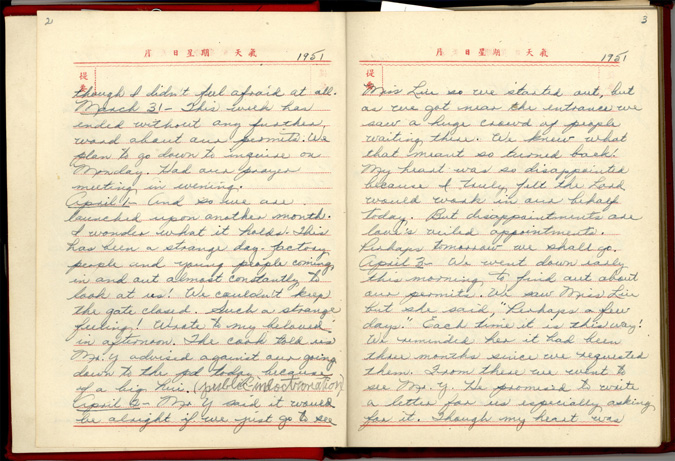 2
月 日 星 期 天 氣
1951
提
though I didn't feel afraid at all.
March 31 - This week has
ended without any further
word about our permits. We
plan to go down to inquire on
Monday. Had our prayer
meeting in evening.
April 1 - And so we are
launched upon another month.
I wonder what it holds. This
has been a strange day. factory
people and young people coming
in and out almost constantly to
look at us! We couldn't keep
the gate closed. Such a strange
feeling! Wrote to my beloved
in afternoon. The cook told us
Mr. Y advised against our going
down to the today because
of a big (public indoctronation)
April 2 - Mr Y said it would
be alright if we just go to see
3
月 日 星 期 天 氣
1951
提
Miss Liu so we started out, but
as we got near the entrance we
saw a huge crowd of people
waiting there. We knew what
that meant so turned back!
My heart was so disappointed
because I truly felt the Lord
would work in our behalf
today. But disappointments are
love's veiled appointments.
Perhaps tomorrow we shall go.
April 3 - We went down early
this morning to find out about
our permits. We saw Miss Liu
but she said, "Perhaps a few
days." Each time it is this way!
We reminded her it had been
three months since we requested
them. From there we went to
see Mr. Y. He promised to write
a letter for us especially asking
for it. Though my heart was